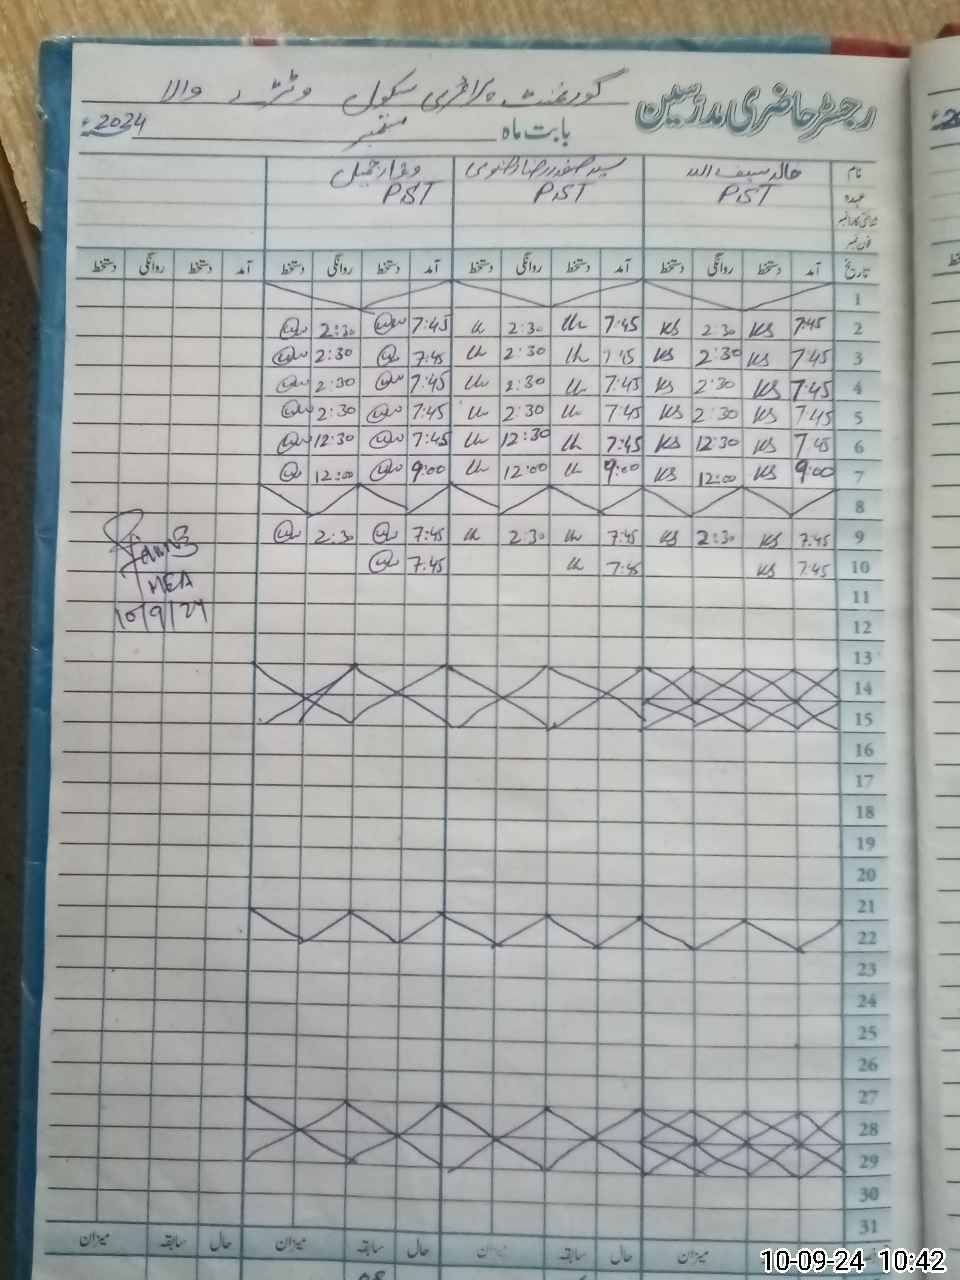 رجسٹر حاضری مدرسین گورنمنٹ پرائمری سکول والا
بابت ماہ ستمبر 2024ء
نام خالد سیف اللہ سید صفدر رضا وقار جمیل
عہدہ PST PST PST
فون نمبر
تاریخ آمد دستخط روانگی دستخط آمد دستخط روانگی دستخط آمد دستخط روانگی دستخط آمد دستخط روانگی دستخط
1
2 7:45 KS 2:30 KS 7:45 2:30 7:45 2:30
3 7:45 KS 2:30 KS 7:45 2:30 7:45 2:30
4 7:45 KS 2:30 KS 7:45 2:30 7:45 2:30
5 7:45 KS 2:30 KS 7:45 2:30 7:45 2:30
6 7:45 KS 12:30 KS 7:45 12:30 7:45 12:30
7 9:00 KS 12:00 KS 9:00 12:00 9:00 12:00
8
9 7:45 KS 2:30 KS 7:45 2:30 7:45 2:30
10 7:45 KS 7:45 7:45
MEA
10/9/24
11
12
13
14
15
16
17
18
19
20
21
22
23
24
25
26
27
28
29
30
31
میزان حال سابقہ میزان حال سابقہ میزان حال سابقہ میزان
10-09-24 10:42